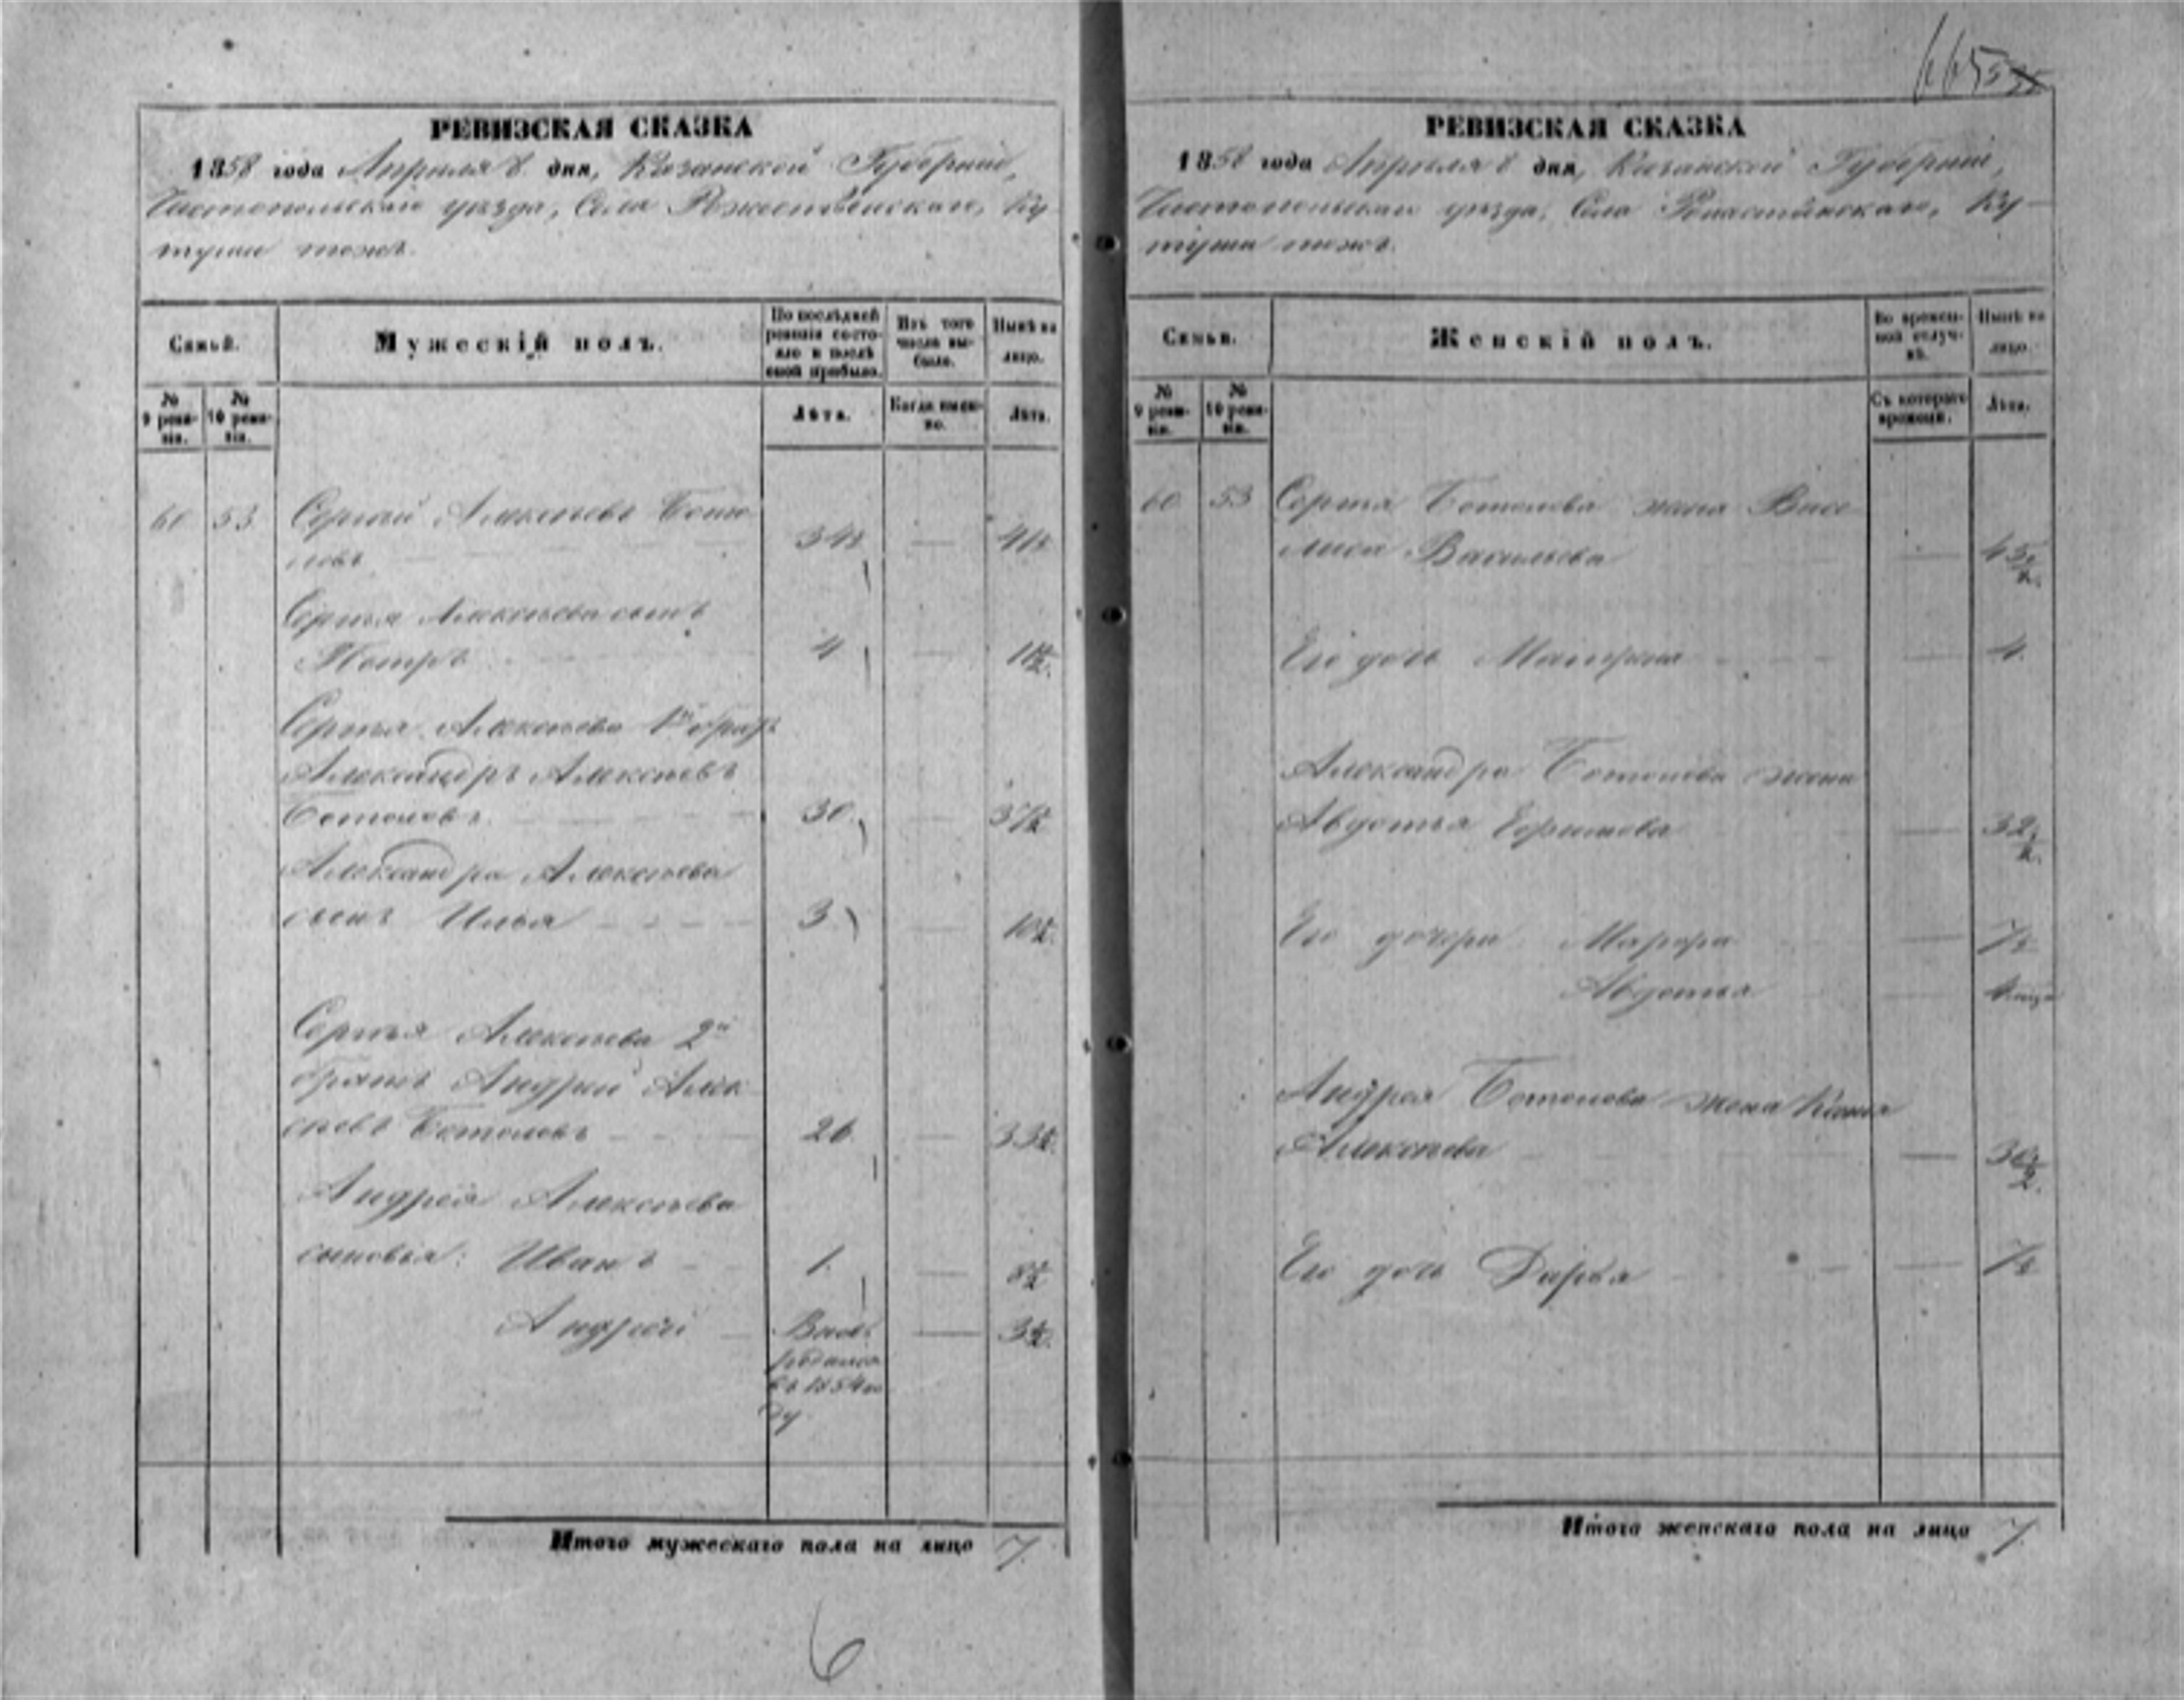 665
РЕВИЗСКАЯ СКАЗКА
1858 года Апреля 8 дня, Казанской Губерніи,
Чистопольскаго уѣзда, Села Рожественскаго, Ку-
туши тожъ.
Семьи.
Мужескій полъ.
По послѣдней
ревизіи состо-
яло и послѣ
оной прибыло.
Изъ того
числа вы-
было.
Нынѣ на
лицо.
№
9 реви-
зіи.
№
10 реви-
зіи.
Лѣта.
Когда имен-
но.
Лѣта.
60 53 Сергѣй Алексѣевъ
Сергѣя Алексѣева сынъ
Петръ 4
Сергѣя Алексѣева 1й братъ
Александръ Алексѣевъ
30
Александра Алексѣева
сынъ Илья 3
Сергѣя Алексѣева 2й
братъ Андрей Алек-
сѣевъ 26
Андрея Алексѣева
сыновья: Иванъ 1
Андрей
родился
въ 1854 го-
ду
Итого мужескаго пола на лицо 7
6
РЕВИЗСКАЯ СКАЗКА
1858 года Апреля 8 дня, Казанской Губерніи,
Чистопольскаго уѣзда, Села Рожественскаго, Ку-
туши тожъ.
Семьи.
Женскій полъ.
Во времен-
ной отлуч-
кѣ.
Нынѣ на
лицо.
№
9 реви-
зіи.
№
10 реви-
зіи.
Съ котораго
времени.
Лѣта.
60 53 Сергѣя жена Васи-
лиса Васильева
Его дочь Матрена 4
Александра жена
Авдотья Ефимова
Его дочери Марфа
Авдотья
Андрея жена
Алексѣева
Его дочь Дарья
Итого женскаго пола на лицо 7